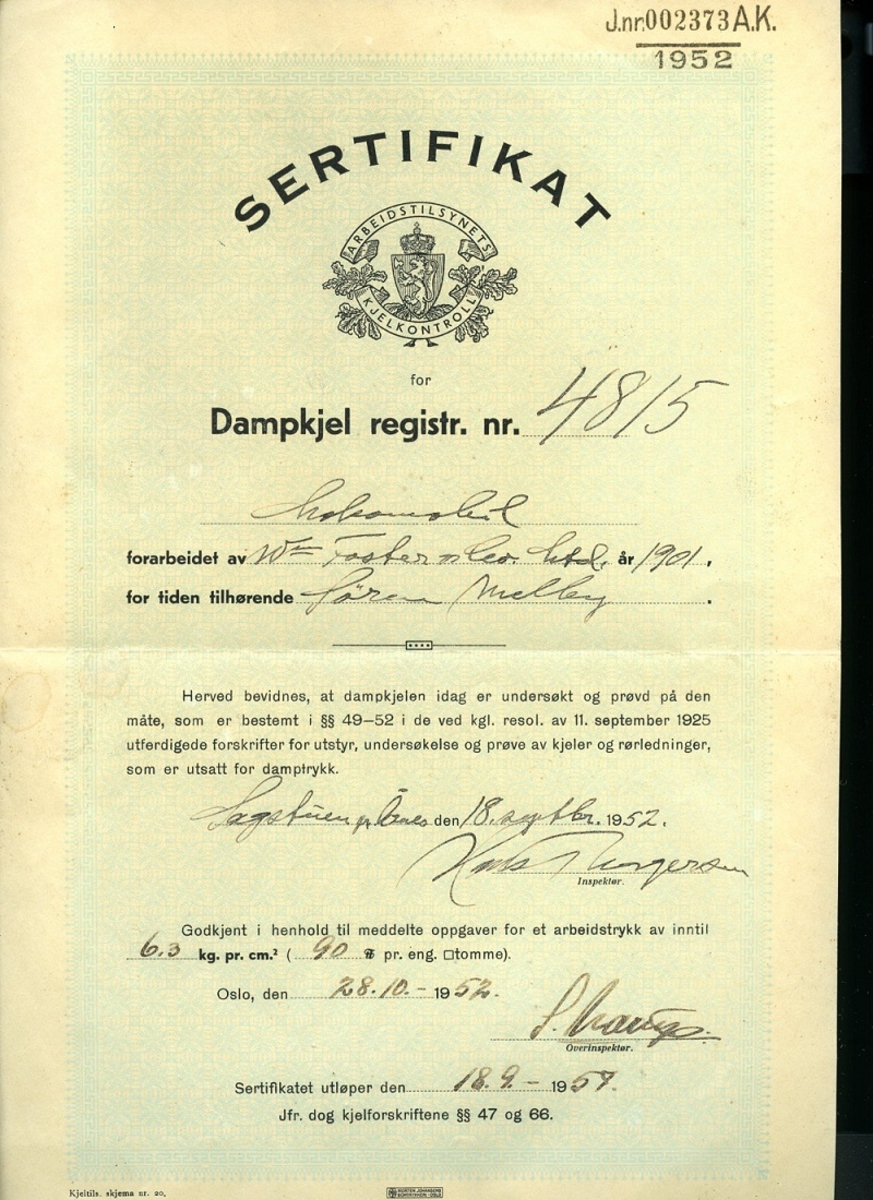 J.nr. 002373 A.K.
1952
SERTIFIKAT
ARBEIDSTILSYNETS
KJELKONTROLL
for
Dampkjel registr. nr. 4815
Lokomobil
forarbeidet av Wm Foster & Co. Ltd. år 1901.
for tiden tilhørende Søren Melby.
Herved bevidnes, at dampkjelen idag er undersøkt og prøvd på den
måte, som er bestemt i §§ 49–52 i de ved kgl. resol. av 11. september 1925
utferdigede forskrifter for utstyr, undersøkelse og prøve av kjeler og rørledninger,
som er utsatt for damptrykk.
Sagstuen pr. den 18. septbr. 1952.
Inspektør.
Godkjent i henhold til meddelte oppgaver for et arbeidstrykk av inntil
6.3 kg. pr. cm.² ( 90 ℔ pr. eng. □tomme).
Oslo, den 28.10.- 1952.
Overinspektør.
Sertifikatet utløper den 18.9.- 1957.
Jfr. dog kjelforskriftene §§ 47 og 66.
Kjeltils. skjema nr. 20.